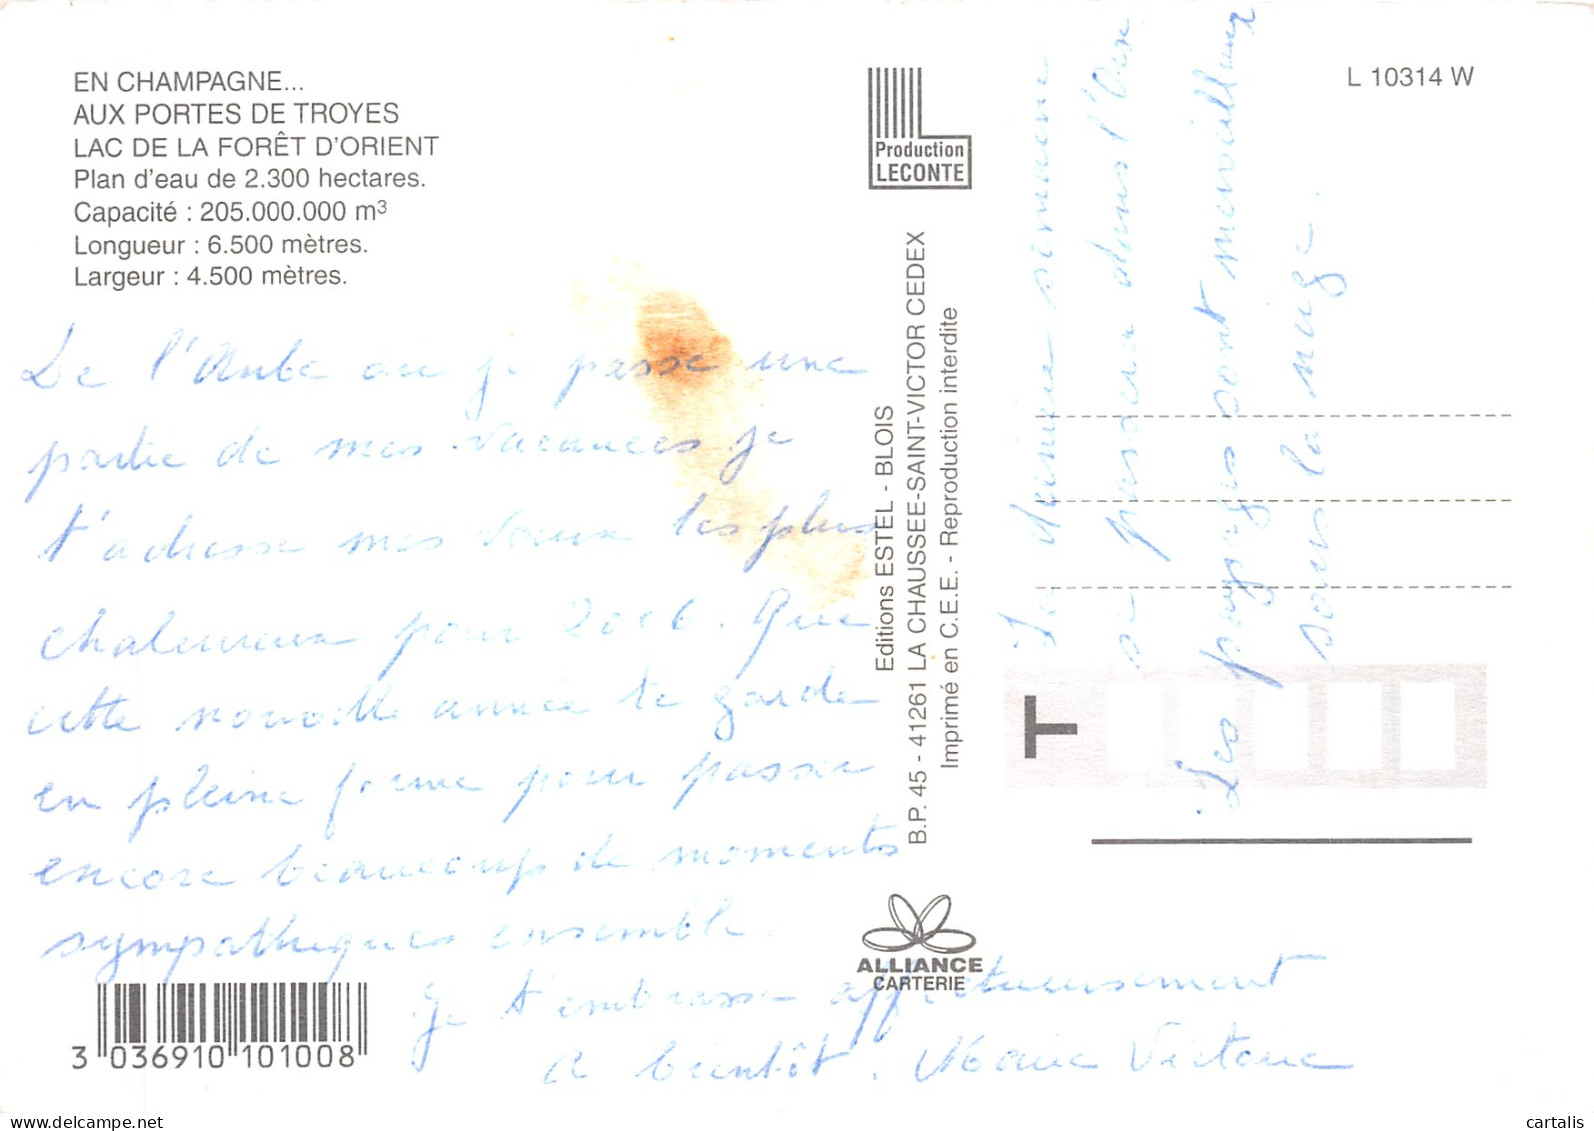 EN CHAMPAGNE...
AUX PORTES DE TROYES
LAC DE LA FORÊT D'ORIENT
Plan d'eau de 2.300 hectares.
Capacité : 205.000.000 m³
Longueur : 6.500 mètres.
Largeur : 4.500 mètres.
De l'Aube ou je passe une
partie de mes vacances je
t'adresse mes voeux les plus
chaleureux pour 2006. Que
cette nouvelle année te garde
en pleine forme pour passer
encore beaucoup de moments
sympathiques ensemble.
Je t'embrasse affectueusement
A bientôt. Marie Victoire
3 036910 101008
Production
LECONTE
Editions ESTEL - BLOIS
B.P. 45 - 41261 LA CHAUSSEE-SAINT-VICTOR CEDEX
Imprimé en C.E.E. - Reproduction interdite
ALLIANCE
CARTERIE
L 10314 W
La dernière semaine
se passera dans l'Oise
Les paysages sont merveilleux
sous la neige.
T
delcampe.net
cartalis